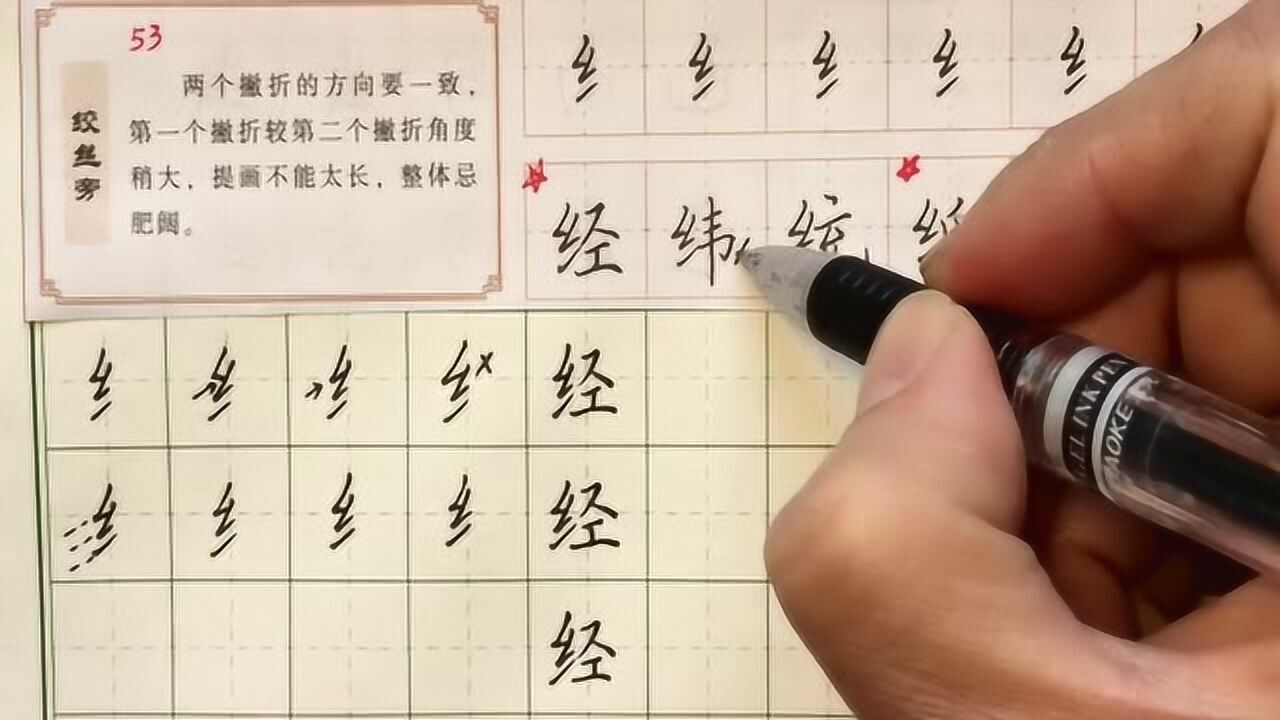 53
绞丝旁
两个撇折的方向要一致，
第一个撇折较第二个撇折角度
稍大，提画不能太长，整体忌
肥阔。
纟 纟 纟 纟 纟
经 纬 统
纟 纟 纟 纟 经
纟 纟 纟 纟 经
经
GEL INK PEN
AOKE